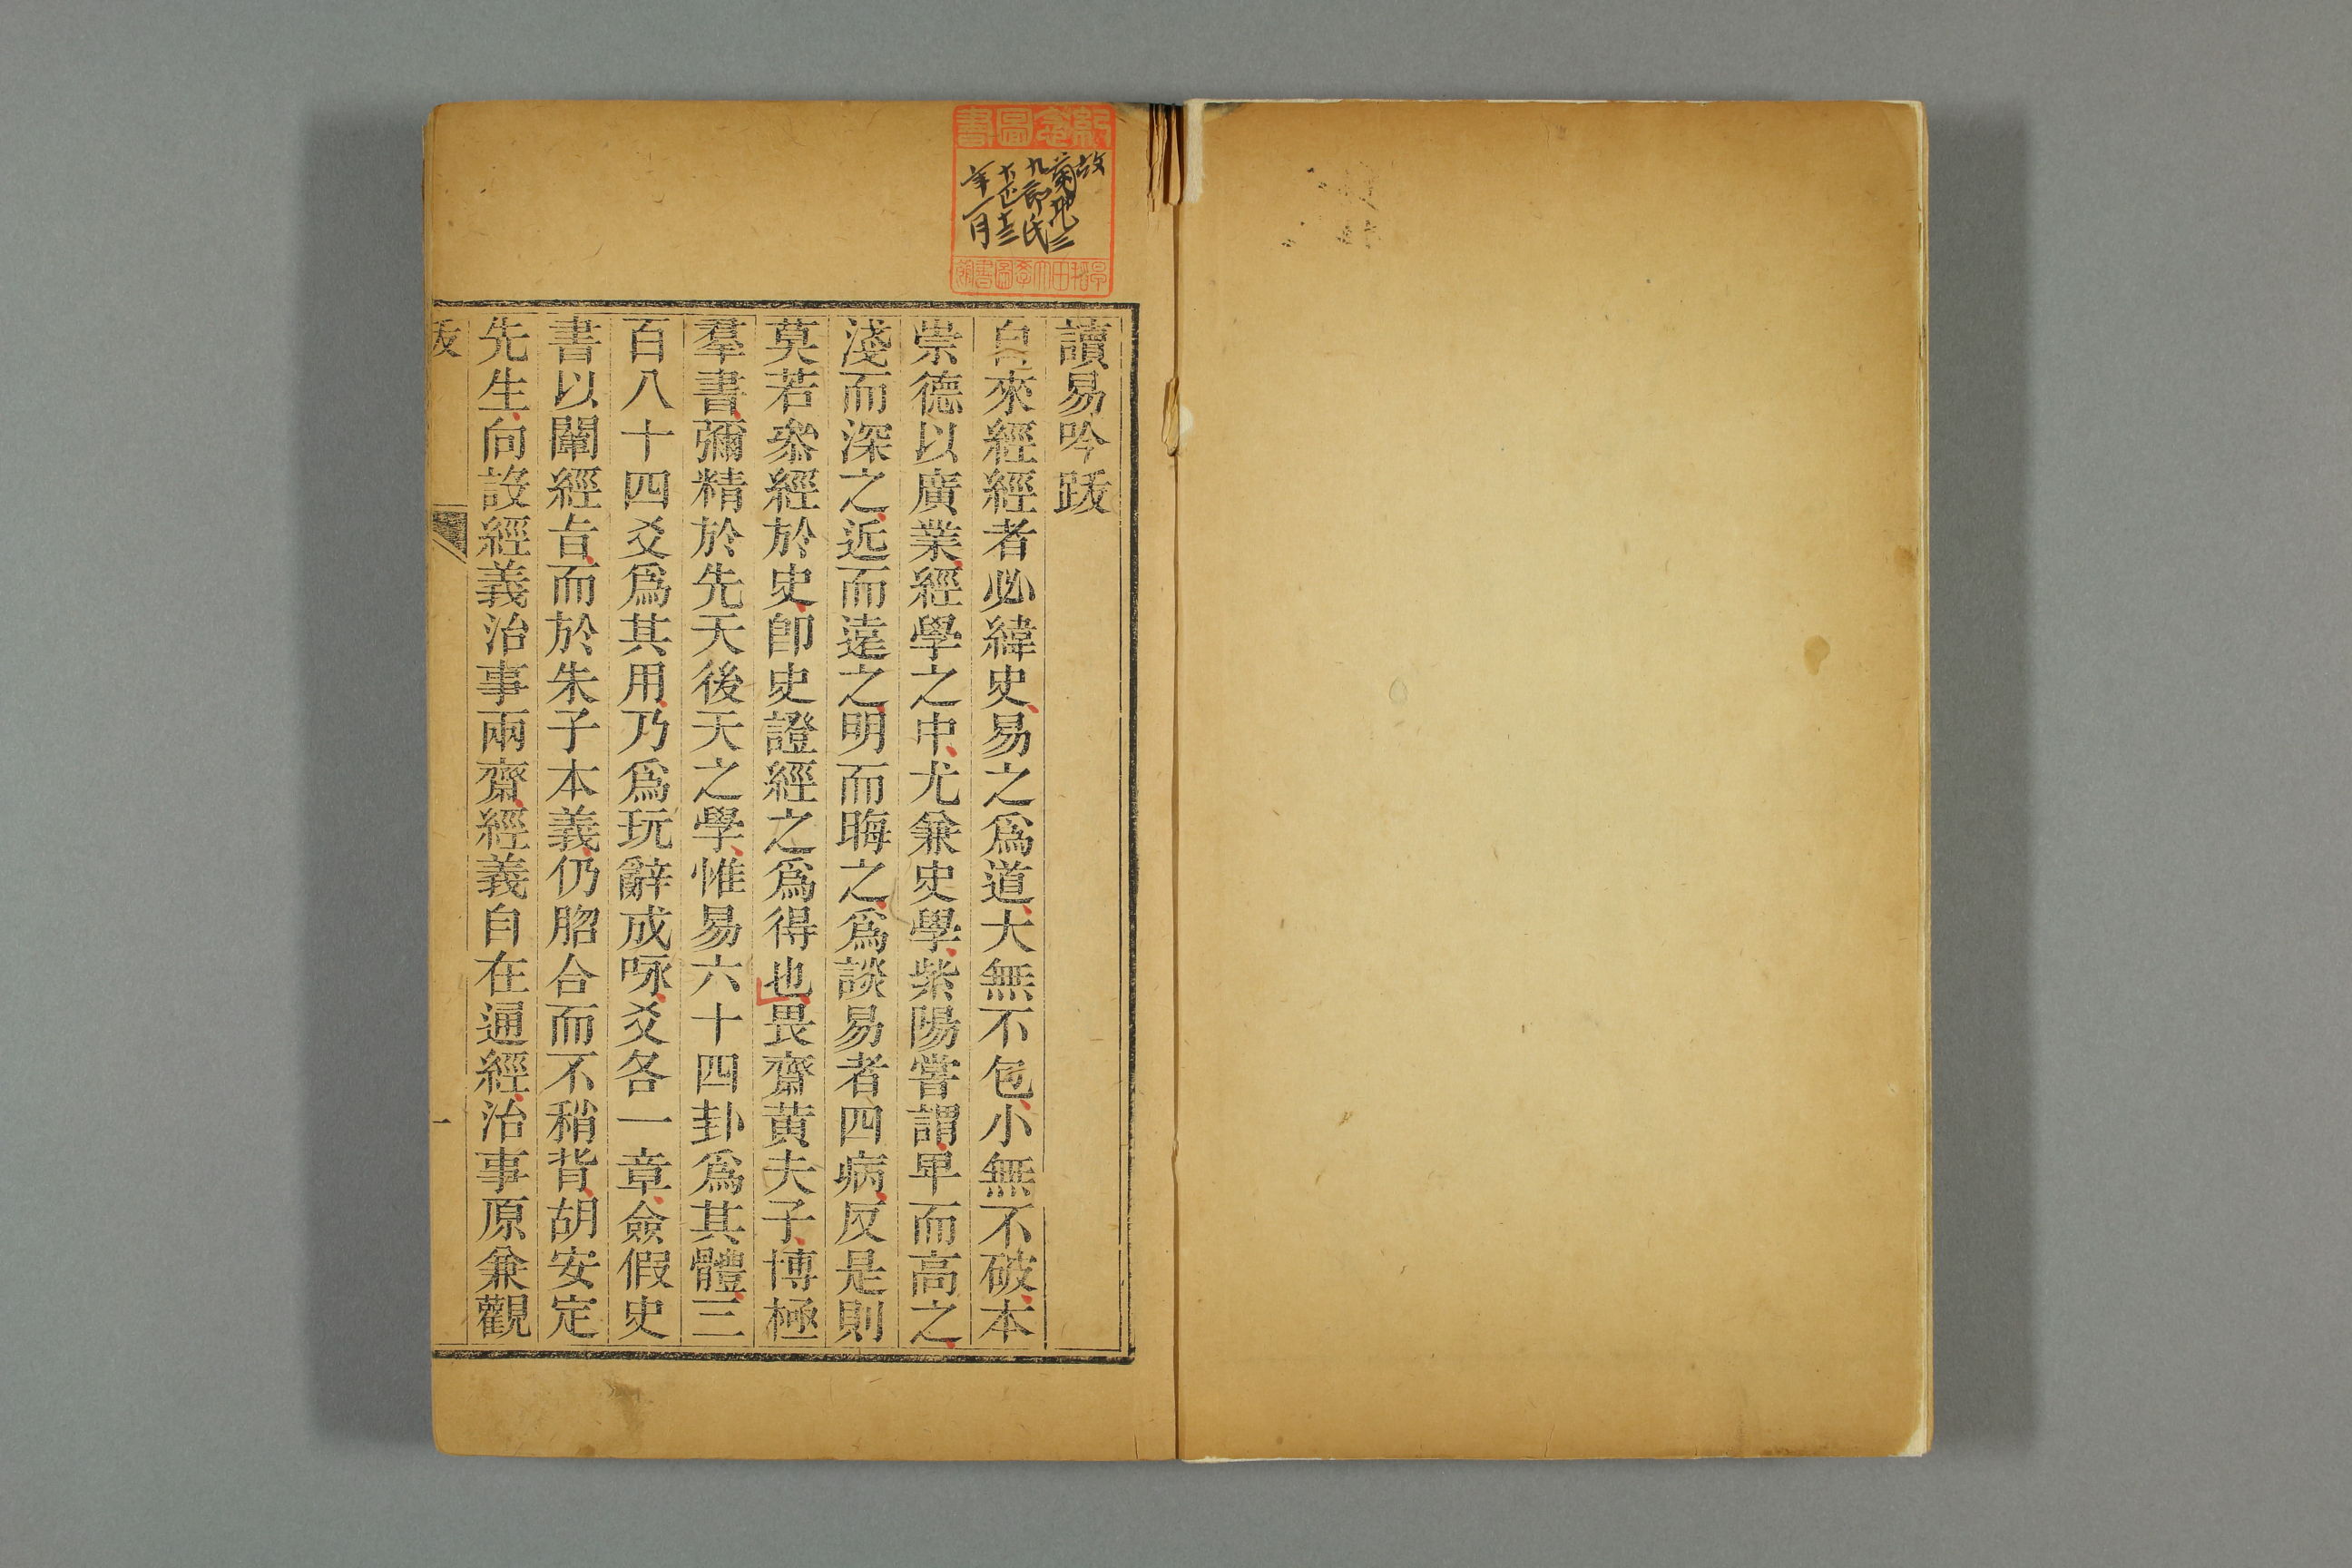 讀易吟䟦
自來經經者必緯史易之爲道大無不包小無不破本
崇德以廣業經學之中尤兼史學紫陽嘗謂𤰞而高之
淺而深之近而遠之明而晦之爲談易者四病反是則
莫若叅經於史卽史證經之爲得也畏齋黄夫子博極
羣書彌精於先天後天之學惟易六十四卦爲其體三
百八十四爻爲其用乃爲玩辭成咏爻各一章僉假史
書以闡經㫖而於朱子本義仍脗合而不稍背胡安定
先生向設經義治事兩齋經義自在通經治事原兼觀
䟦
一
紀念圖書
故
菊池三
九郎氏
大正十三
年一月
早稻田大學圖書館